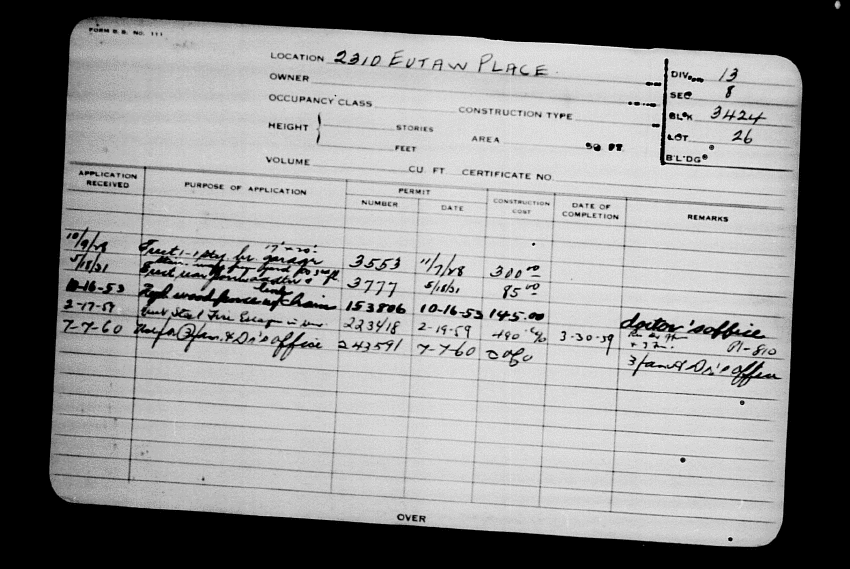 FORM B. B. No. 111
LOCATION 2310 EUTAW PLACE
OWNER
OCCUPANCY CLASS CONSTRUCTION TYPE
HEIGHT STORIES AREA SQ FT
FEET
VOLUME CU. FT. CERTIFICATE NO.
DIV. 13
SEC. 8
BL'K 3424
LOT 26
B'L'DG
APPLICATION RECEIVED PURPOSE OF APPLICATION PERMIT CONSTRUCTION COST DATE OF COMPLETION REMARKS
NUMBER DATE
10/9/28 Erect 1-sty br. garage 17' x 20' 3553 11/7/28 300.00
5/18/31 Erect rear 3777 5/18/31 85.00
10-16-53 wood fence w/ chain link 153806 10-16-53 145.00
2-17-59 Erect Steel Fire Escape in 223418 2-19-59 490 3-30-59 doctor's office
P1-810
7-7-60 fam. & Dr's office 243591 7-7-60 3 fam & Dr's office
OVER